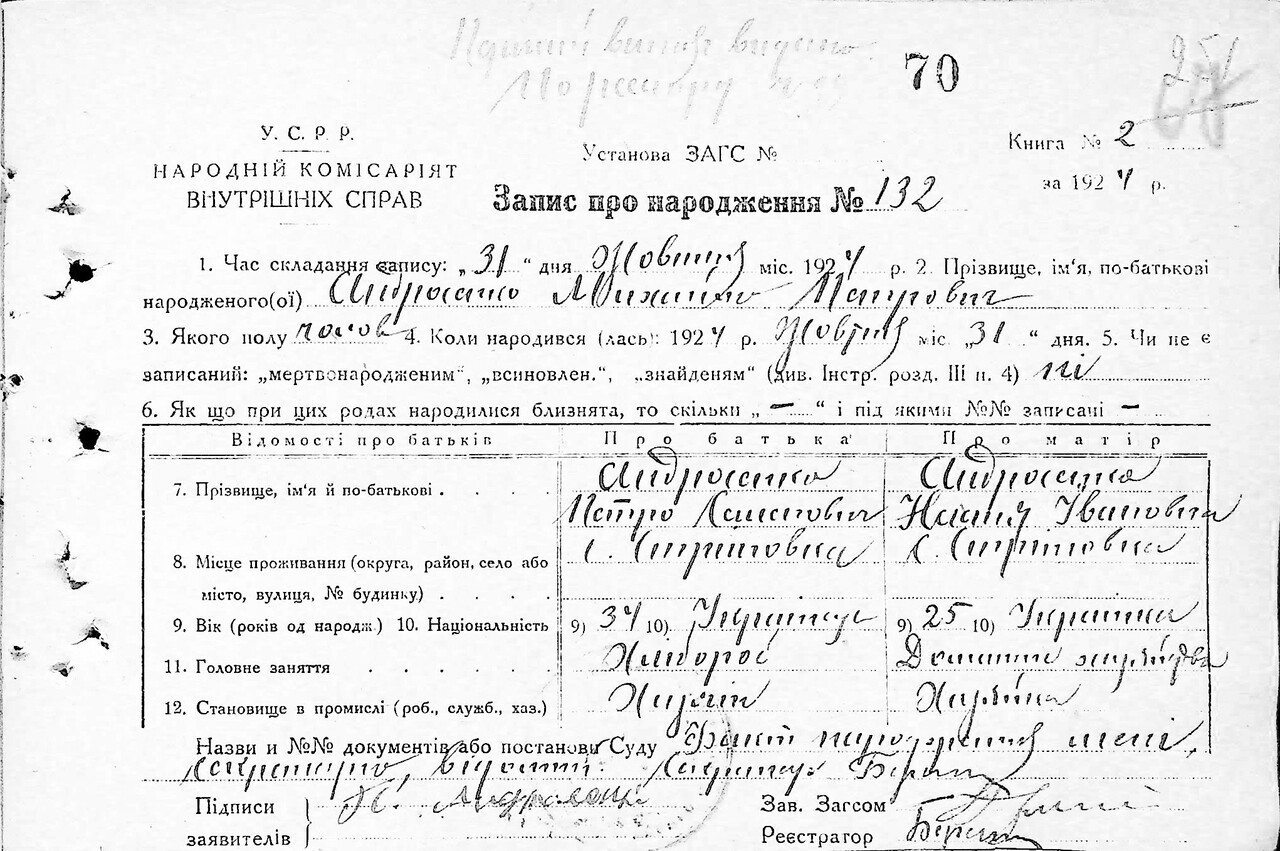 70
У. С. Р. Р.
НАРОДНІЙ КОМІСАРІЯТ
ВНУТРІШНІХ СПРАВ
Установа ЗАГС №
Запис про народження № 132
Книга № 2
за 1924 р.
1. Час складання запису: „31“ дня Жовтня міс. 1924 р. 2. Прізвище, ім'я, по-батькові
народженого(ої) Андросенко Михайло Петрович
3. Якого полу чолов 4. Коли народився (лась): 1924 р. Жовтня міс „31“ дня. 5. Чи не є
записаний: „мертвонародженим“, „всиновлен.“, „знайденям“ (див. Інстр. розд. III п. 4) ні
6. Як що при цих родах народилися близнята, то скільки „—“ і під якими №№ записані —
Відомості про батьків Про батька Про матір
7. Прізвище, ім'я й по-батькові Андросенко Андросенко
Петро Івановна
8. Місце проживання (округа, район, село або с. с.
місто, вулиця, № будинку)
9. Вік (років од народж.) 10. Національність 9) 34 10) Українець 9) 25 10) Українка
11. Головне заняття Хлібороб Домашнє
12. Становище в промислі (роб., служб., хаз.) Хазяїн Хазяйка
Назви и №№ документів або постанови Суду Факт народження мені,
секретарю, відомий. Секретарь
Підписи П. Андросенко Зав. Загсом
заявителів Реєстратор